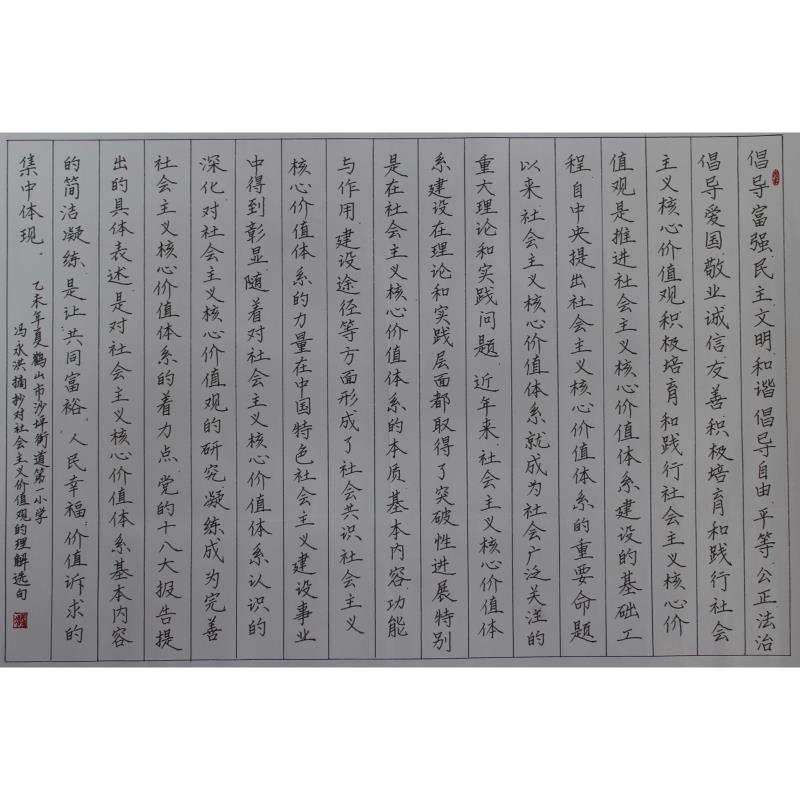 倡导富强民主文明和谐倡导自由平等公正法治
倡导爱国敬业诚信友善积极培育和践行社会
主义核心价值观积极培育和践行社会主义核心价
值观是推进社会主义核心价值体系建设的基础工
程自中央提出社会主义核心价值体系的重要命题
以来社会主义核心价值体系就成为社会广泛关注的
重大理论和实践问题近年来社会主义核心价值体
系建设在理论和实践层面都取得了突破性进展特别
是在社会主义核心价值体系的本质基本内容功能
与作用建设途径等方面形成了社会共识社会主义
核心价值体系的力量在中国特色社会主义建设事业
中得到彰显随着对社会主义核心价值体系认识的
深化对社会主义核心价值观的研究凝练成为完善
社会主义核心价值体系的着力点党的十八大报告提
出的具体表述是对社会主义核心价值体系基本内容
的简洁凝练是让共同富裕人民幸福价值诉求的
集中体现.
乙未年夏鹤山市沙坪街道第一小学
冯永洪摘抄对社会主义价值观的理解选句